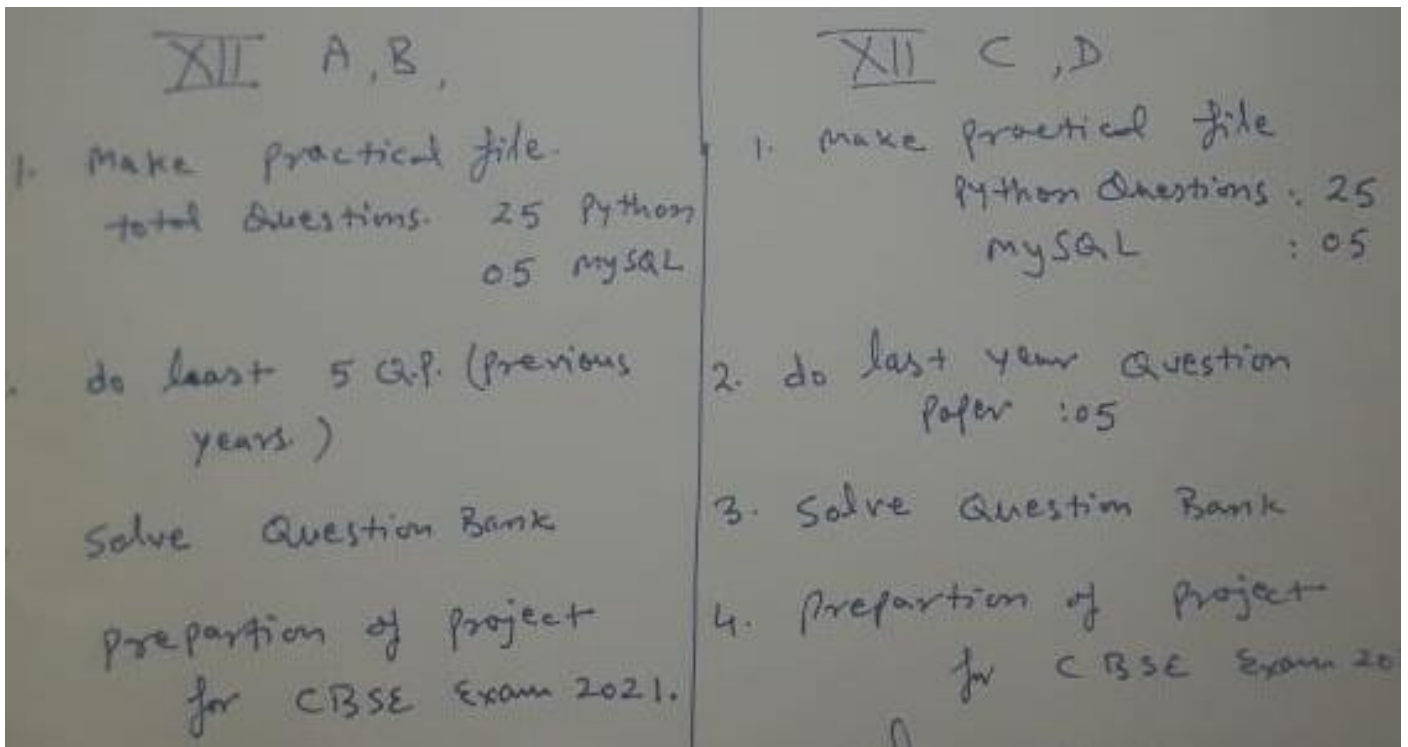 XII A, B,
1. Make practical file.
total Questions. 25 Python
05 MySQL
do least 5 Q.P. (previous
years.)
Solve Question Bank
prepartion of project
for CBSE Exam 2021.
XII C, D
1. Make practical file
Python Questions : 25
MySQL : 05
2. do last year Question
Paper : 05
3. Solve Question Bank
4. prepartion of project
for CBSE Exam 20